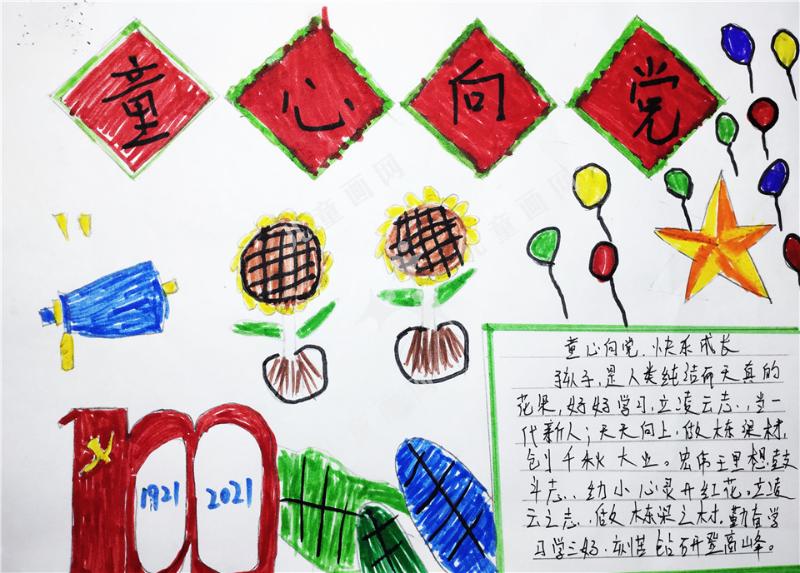 童心向党
童心向党、快乐成长
孩子,是人类纯洁而天真的
花朵,好好学习,立凌云志,当一
代新人;天天向上,做栋梁材,
创千秋大业。宏伟理想鼓
斗志,幼小心灵开红花。立凌
云之志,做栋梁之材,勤奋学
习学三好,刻苦钻研登高峰。
1921 2021
100